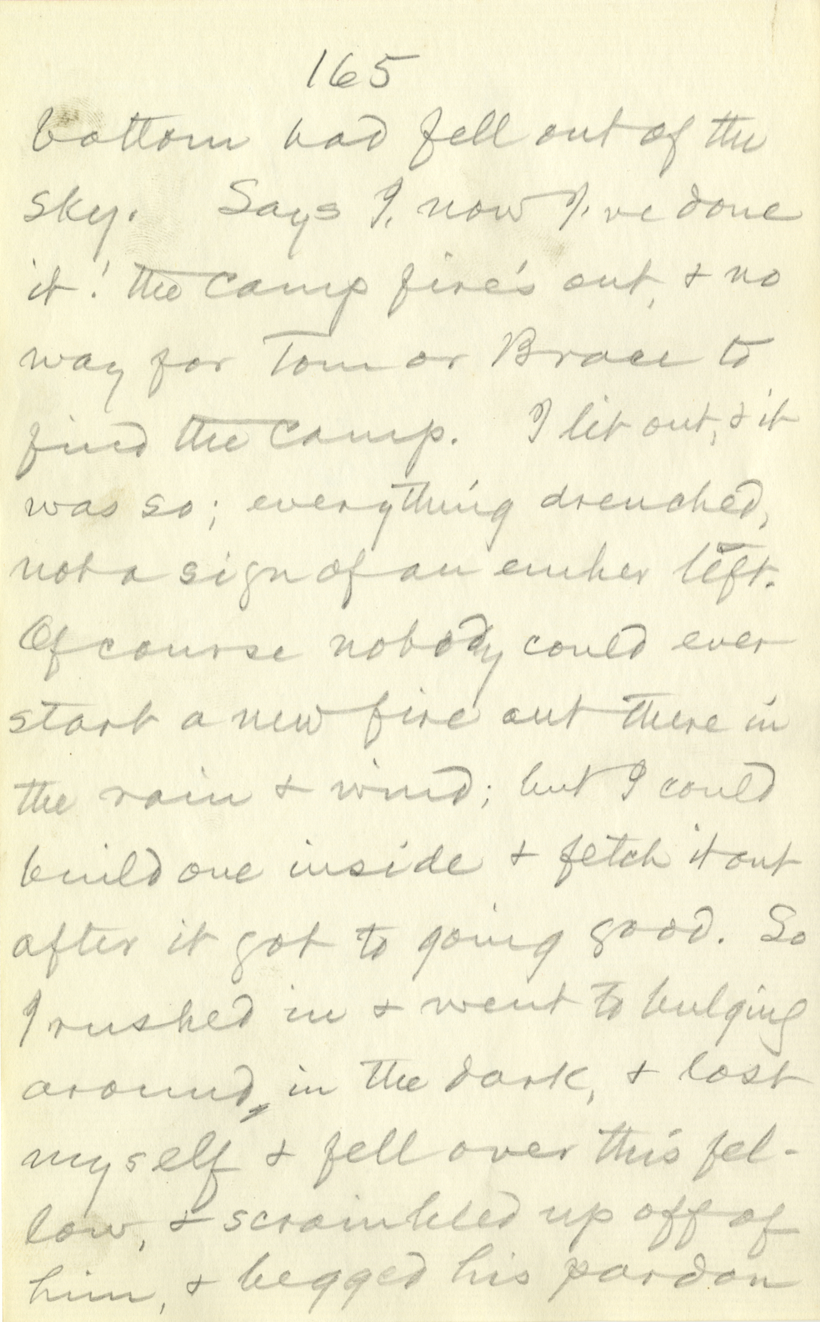 165
bottom had fell out of the
sky. Says I, now I've done
it! the camp fire's out, & no
way for Tom or Brace to
find the camp. I lit out, & it
was so; everything drenched,
not a sign of an ember left.
Of course nobody could ever
start a new fire out there in
the rain & wind; but I could
build one inside & fetch it out
after it got to going good. So
I rushed in & went to bulging
around, in the dark, & lost
myself & fell over this fel-
low, & scrambled up off of
him, & begged his pardon